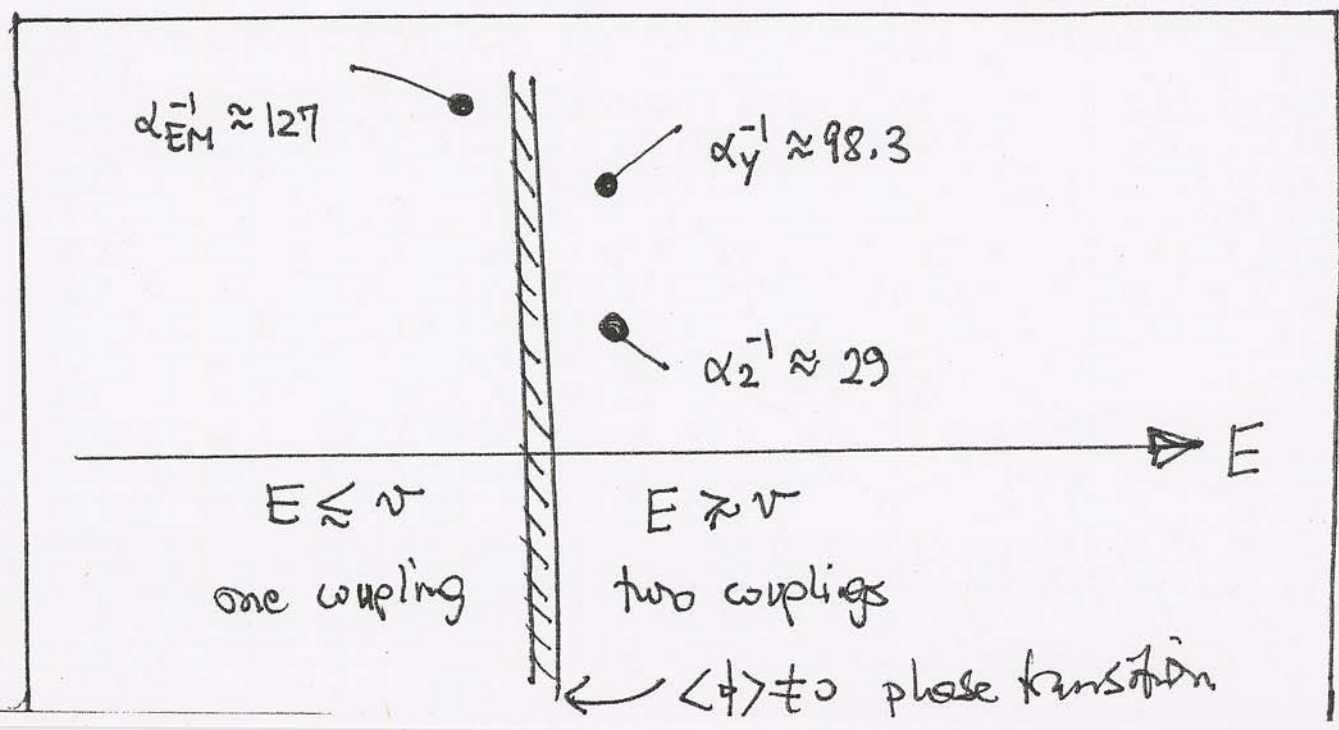 α_EM^-1 ≈ 127
α_Y^-1 ≈ 98.3
α_2^-1 ≈ 29
E
E ≲ v
E ≳ v
one coupling
two couplings
<ϕ> ≠ 0 phase transition